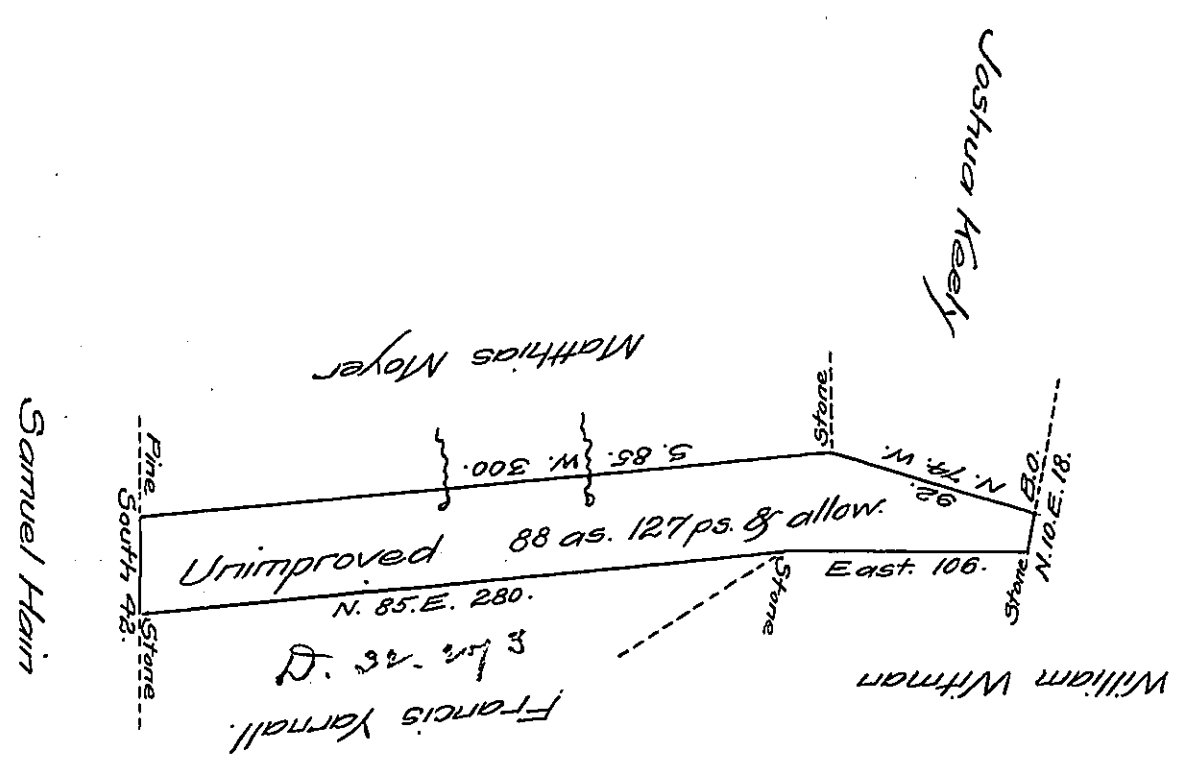 Joshua Keely
Matthias Moyer
Samuel Hain
Pine
South 42.
Stone
S. 85. W. 300.
Stone
N. 74. W.
92.
B.O.
N. 10. E. 18.
Stone
Unimproved 88 as. 127 ps. & allow.
East. 106.
Stone
N. 85. E. 280.
D.
Francis Yarnall.
William Witman